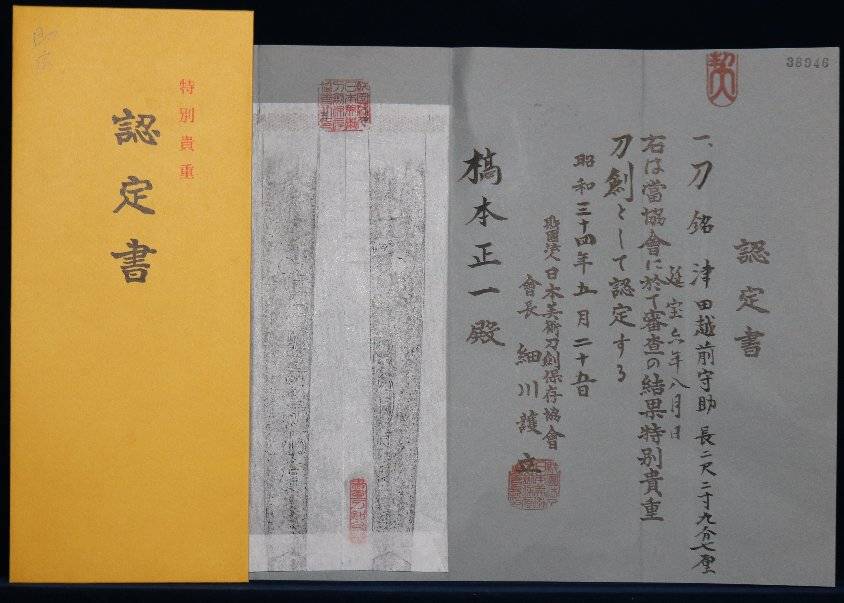 特別貴重
認定書
38946
認定書
一、刀 銘 津田越前守助 長二尺二寸九分七厘
延宝六年八月日
右は當協會に於て審査の結果特別貴重
刀劍として認定する
昭和三十四年五月二十五日
財團法人日本美術刀劍保存協會
會長 細川護立
槁本正一殿